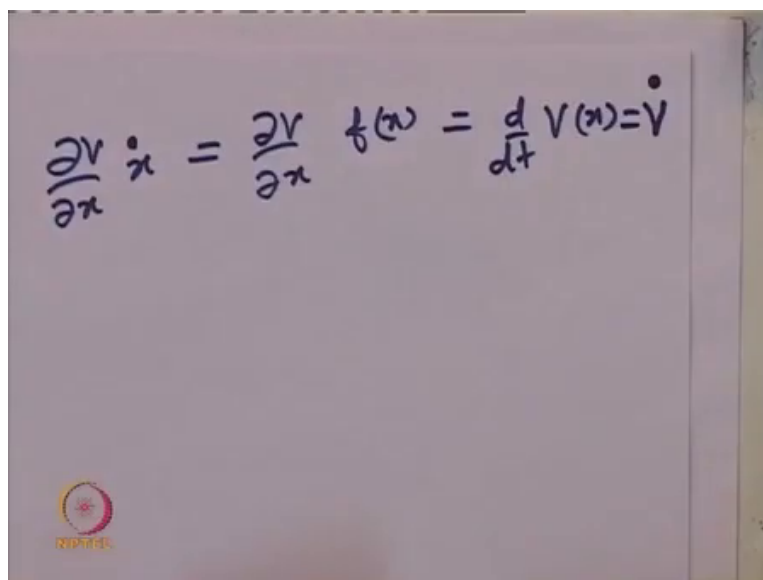 ∂V/∂x ẋ = ∂V/∂x f(x) = d/dt V(x) = V̇
NPTEL